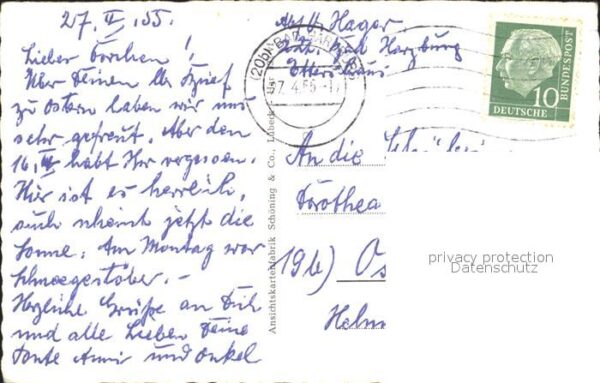 27. IV. 55.
Lieber Dorchen!
Über Deinen lb. Brief
zu Ostern haben wir uns
sehr gefreut. Aber den
16. IV habt Ihr vergessen.
Hier ist es herrlich,
auch scheint jetzt die
Sonne. Am Montag war
Schneegestöber. –
Herzliche Grüße an Dich
und alle Lieben Deine
Tante Anni und Onkel
Abs. Hager,
Bad Harzburg
Ansichtskartenfabrik Schöning & Co., Lübeck
An die Schülerin
Dorothea
19b) Os
Helm
10
DEUTSCHE
BUNDESPOST
privacy protection
Datenschutz